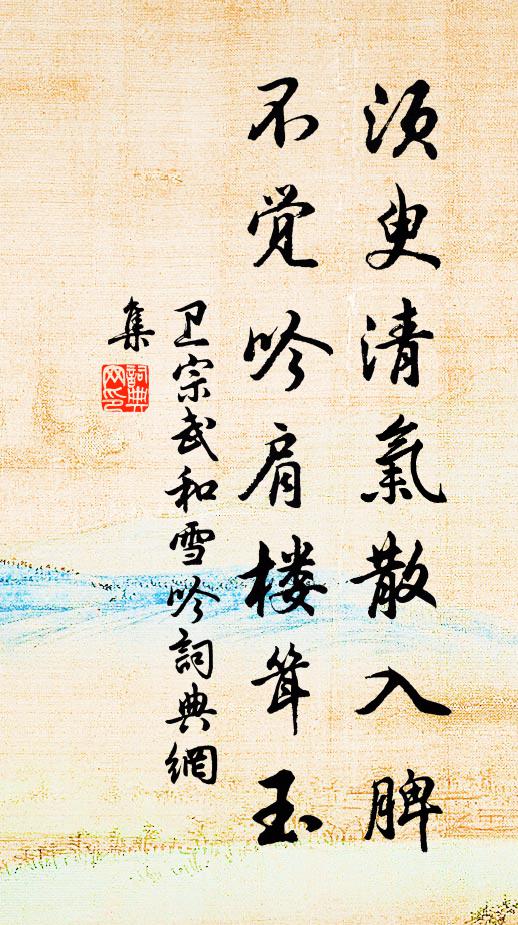 须臾清氣散入脾
不觉吟肩楼耸玉
卫宗武和雪吟詞典網
集
詞典網印